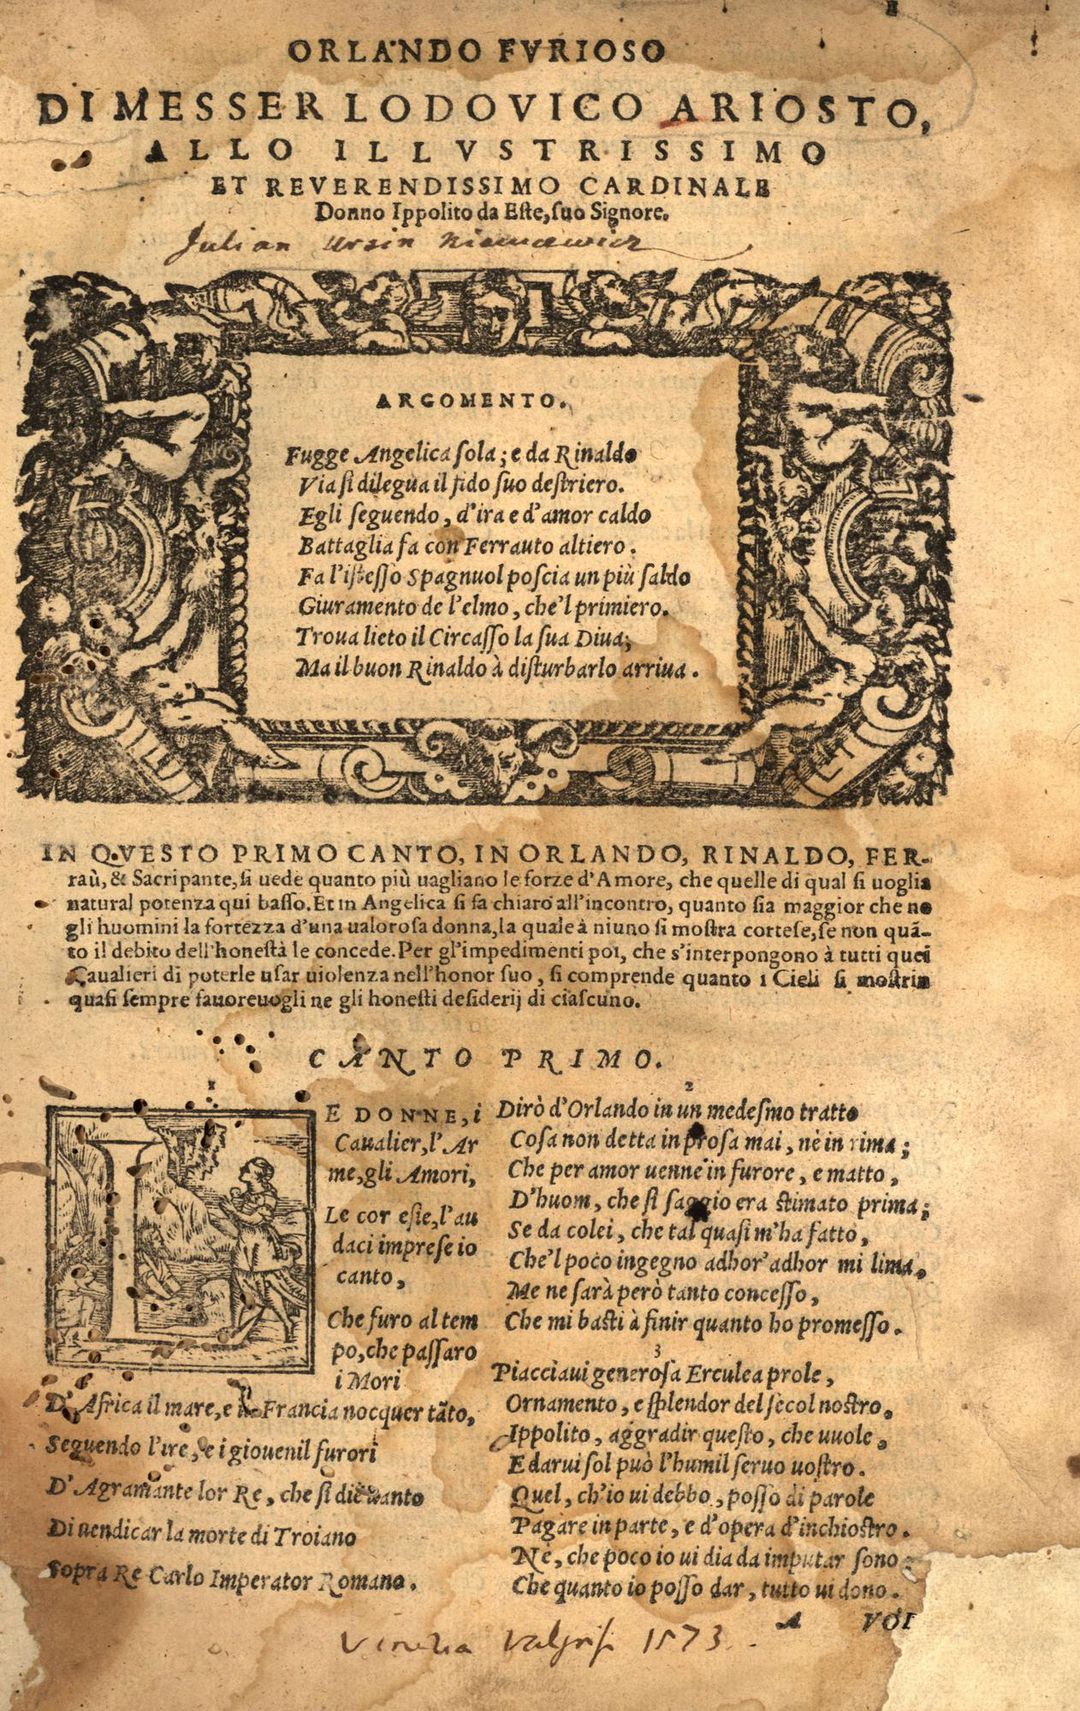 ORLANDO FVRIOSO
DI MESSER LODOVICO ARIOSTO,
ALLO ILLVSTRISSIMO
ET REVERENDISSIMO CARDINALE
Donno Ippolito da Este, suo Signore.
Julian Ursin Niemcewicz
ARGOMENTO.
Fugge Angelica sola; e da Rinaldo
Via si dilegua il fido suo destriero.
Egli seguendo, d'ira e d'amor caldo
Battaglia fa con Ferrauto altiero.
Fa l'istesso Spagnuol poscia un più saldo
Giuramento de l'elmo, che'l primiero.
Troua lieto il Circasso la sua Diua;
Ma il buon Rinaldo à disturbarlo arriua.
IN QVESTO PRIMO CANTO, IN ORLANDO, RINALDO, FER-
raù, & Sacripante, si uede quanto più uagliano le forze d'Amore, che quelle di qual si uoglia
natural potenza qui basso. Et in Angelica si fa chiaro all'incontro, quanto sia maggior che ne
gli huomini la fortezza d'una valorosa donna, la quale à niuno si mostra cortese, se non quã-
to il debito dell'honestà le concede. Per gl'impedimenti poi, che s'interpongono à tutti quei
Caualieri di poterle usar uiolenza nell'honor suo, si comprende quanto i Cieli si mostrin
quasi sempre fauoreuogli ne gli honesti desiderij di ciascuno.
CANTO PRIMO.
1
LE DONNE, i
Caualier, l'Ar
me, gli Amori,
Le cor esie, l'au
daci imprese io
canto,
Che furo al tem
po, che passaro
i Mori
D'Africa il mare, e in Francia nocquer tãto,
Seguendo l'ire, e i giouenil furori
D'Agramante lor Re, che si diè uanto
Di uendicar la morte di Troiano
Sopra Re Carlo Imperator Romano.
2
Dirò d'Orlando in un medesmo tratto
Cosa non detta in prosa mai, nè in rima;
Che per amor uenne in furore, e matto,
D'huom, che sì saggio era stimato prima;
Se da colei, che tal quasi m'ha fatto,
Che'l poco ingegno adhor'adhor mi lima,
Me ne sarà però tanto concesso,
Che mi basti à finir quanto ho promesso.
3
Piacciaui generosa Erculea prole,
Ornamento, e splendor del secol nostro,
Ippolito, aggradir questo, che uuole,
E darui sol può l'humil seruo uostro.
Quel, ch'io ui debbo, posso di parole
Pagare in parte, e d'opera d'inchiostro.
Nè, che poco io ui dia da imputar sono;
Che quanto io posso dar, tutto ui dono.
A VOI
Venezia Valgrisi 1573.